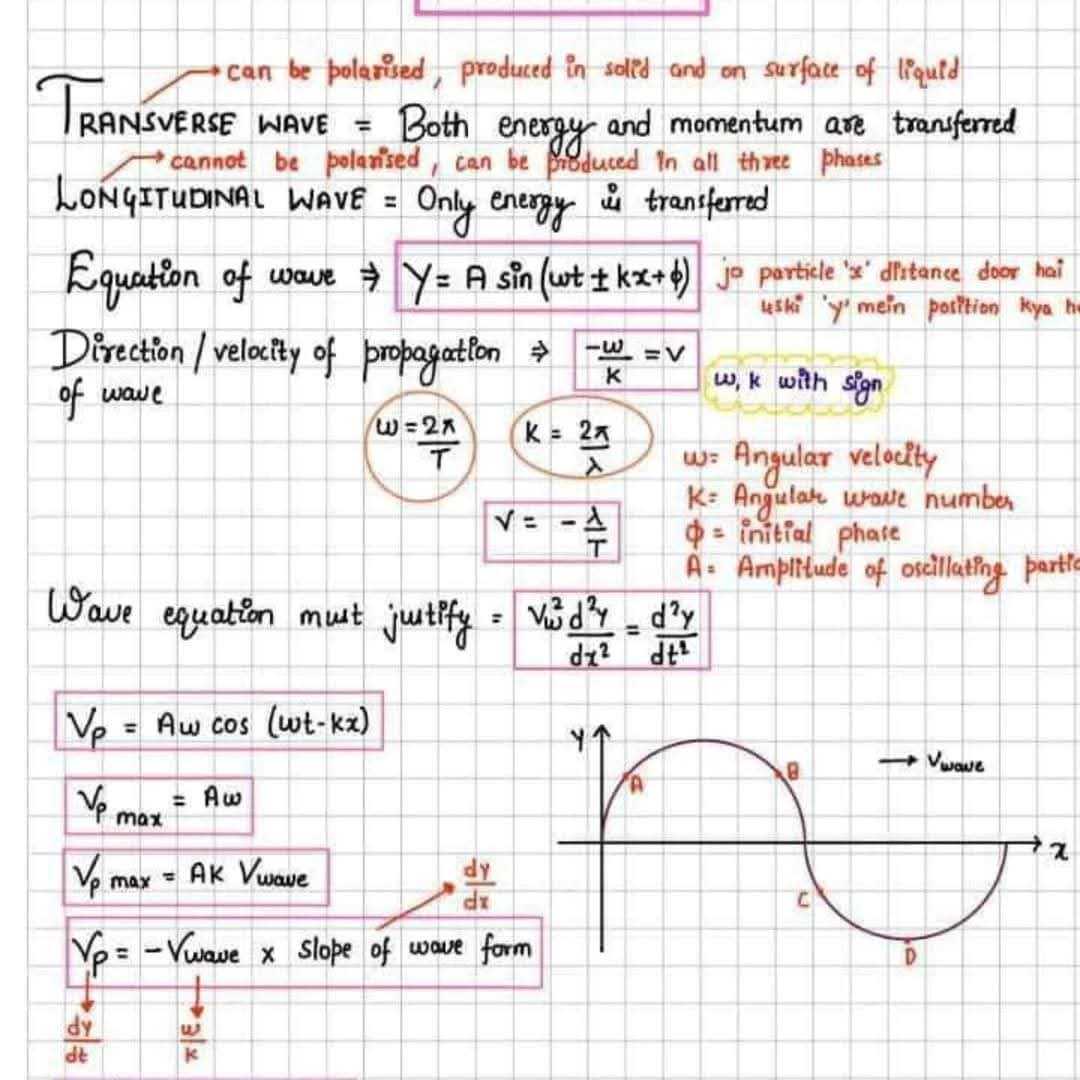 can be polarised, produced in solid and on surface of liquid
TRANSVERSE WAVE = Both energy and momentum are transferred
cannot be polarised, can be produced in all three phases
LONGITUDINAL WAVE = Only energy is transferred
Equation of wave ⇒ Y = A sin (ωt ± kx + ϕ)
jo particle 'x' distance door hai
uski 'y' mein position kya
Direction / velocity of propagation ⇒ -ω/K = V
of wave
ω, k with sign
ω = 2π/T
K = 2π/λ
ω = Angular velocity
K = Angular wave number
V = - λ/T
ϕ = initial phase
A = Amplitude of oscillating
Wave equation must justify = Vω² d²y/dx² = d²y/dt²
Vp = Aω cos (ωt - kx)
Vp max = Aω
Vp max = AK Vwave
dy/dx
Vp = - Vwave x Slope of wave form
dy/dt
ω/k
Y
A
B
→ Vwave
x
C
D